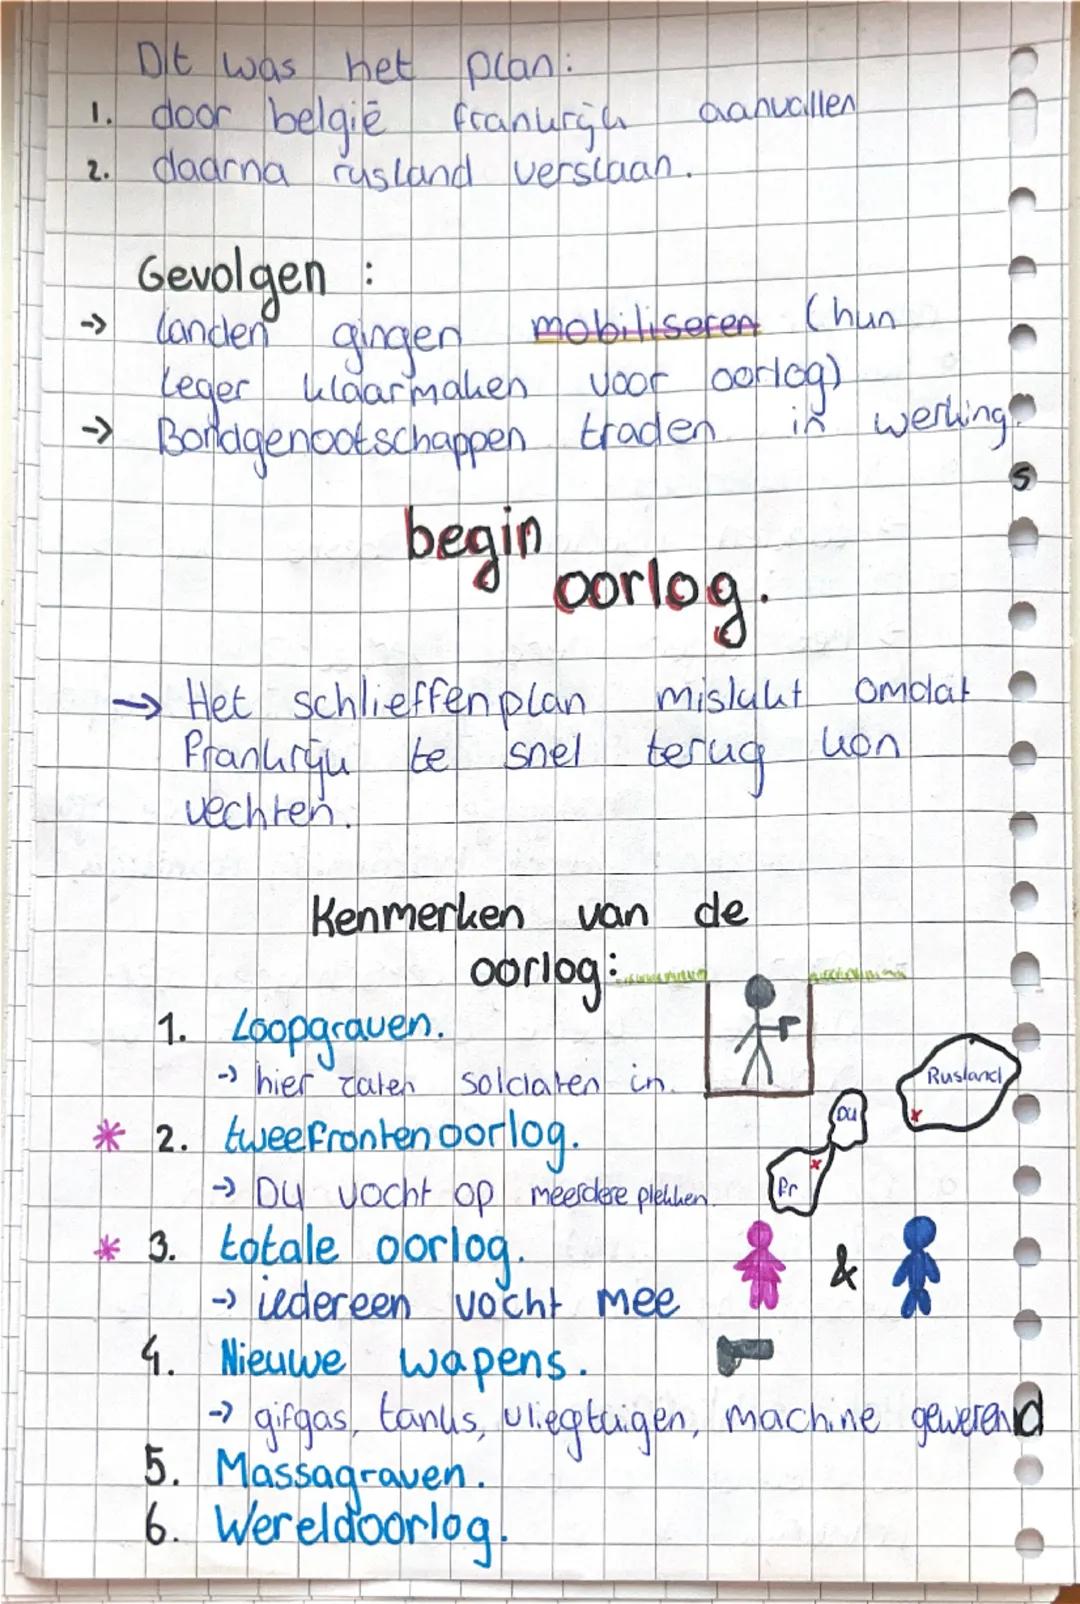 Dit was het plan:
1. door belgië frankrijk aanvallen
2. daarna rusland verslaan.
Gevolgen :
→ landen gingen mobiliseren (hun
leger klaarmaken voor oorlog)
→ Bondgenootschappen traden in werking.
s
begin
oorlog.
→ Het schlieffenplan mislukt omdat
Frankrijk te snel terug kon
vechten.
Kenmerken van de
oorlog:
1. Loopgraven.
→ hier zaten soldaten in.
Rusland
DU
* 2. tweefrontenoorlog.
→ DU vocht op meerdere plekken.
fr
* 3. totale oorlog.
&
→ iedereen vocht mee
4. Nieuwe wapens.
→ gifgas, tanks, vliegtuigen, machine geweren
5. Massagraven.
6. Wereldoorlog.